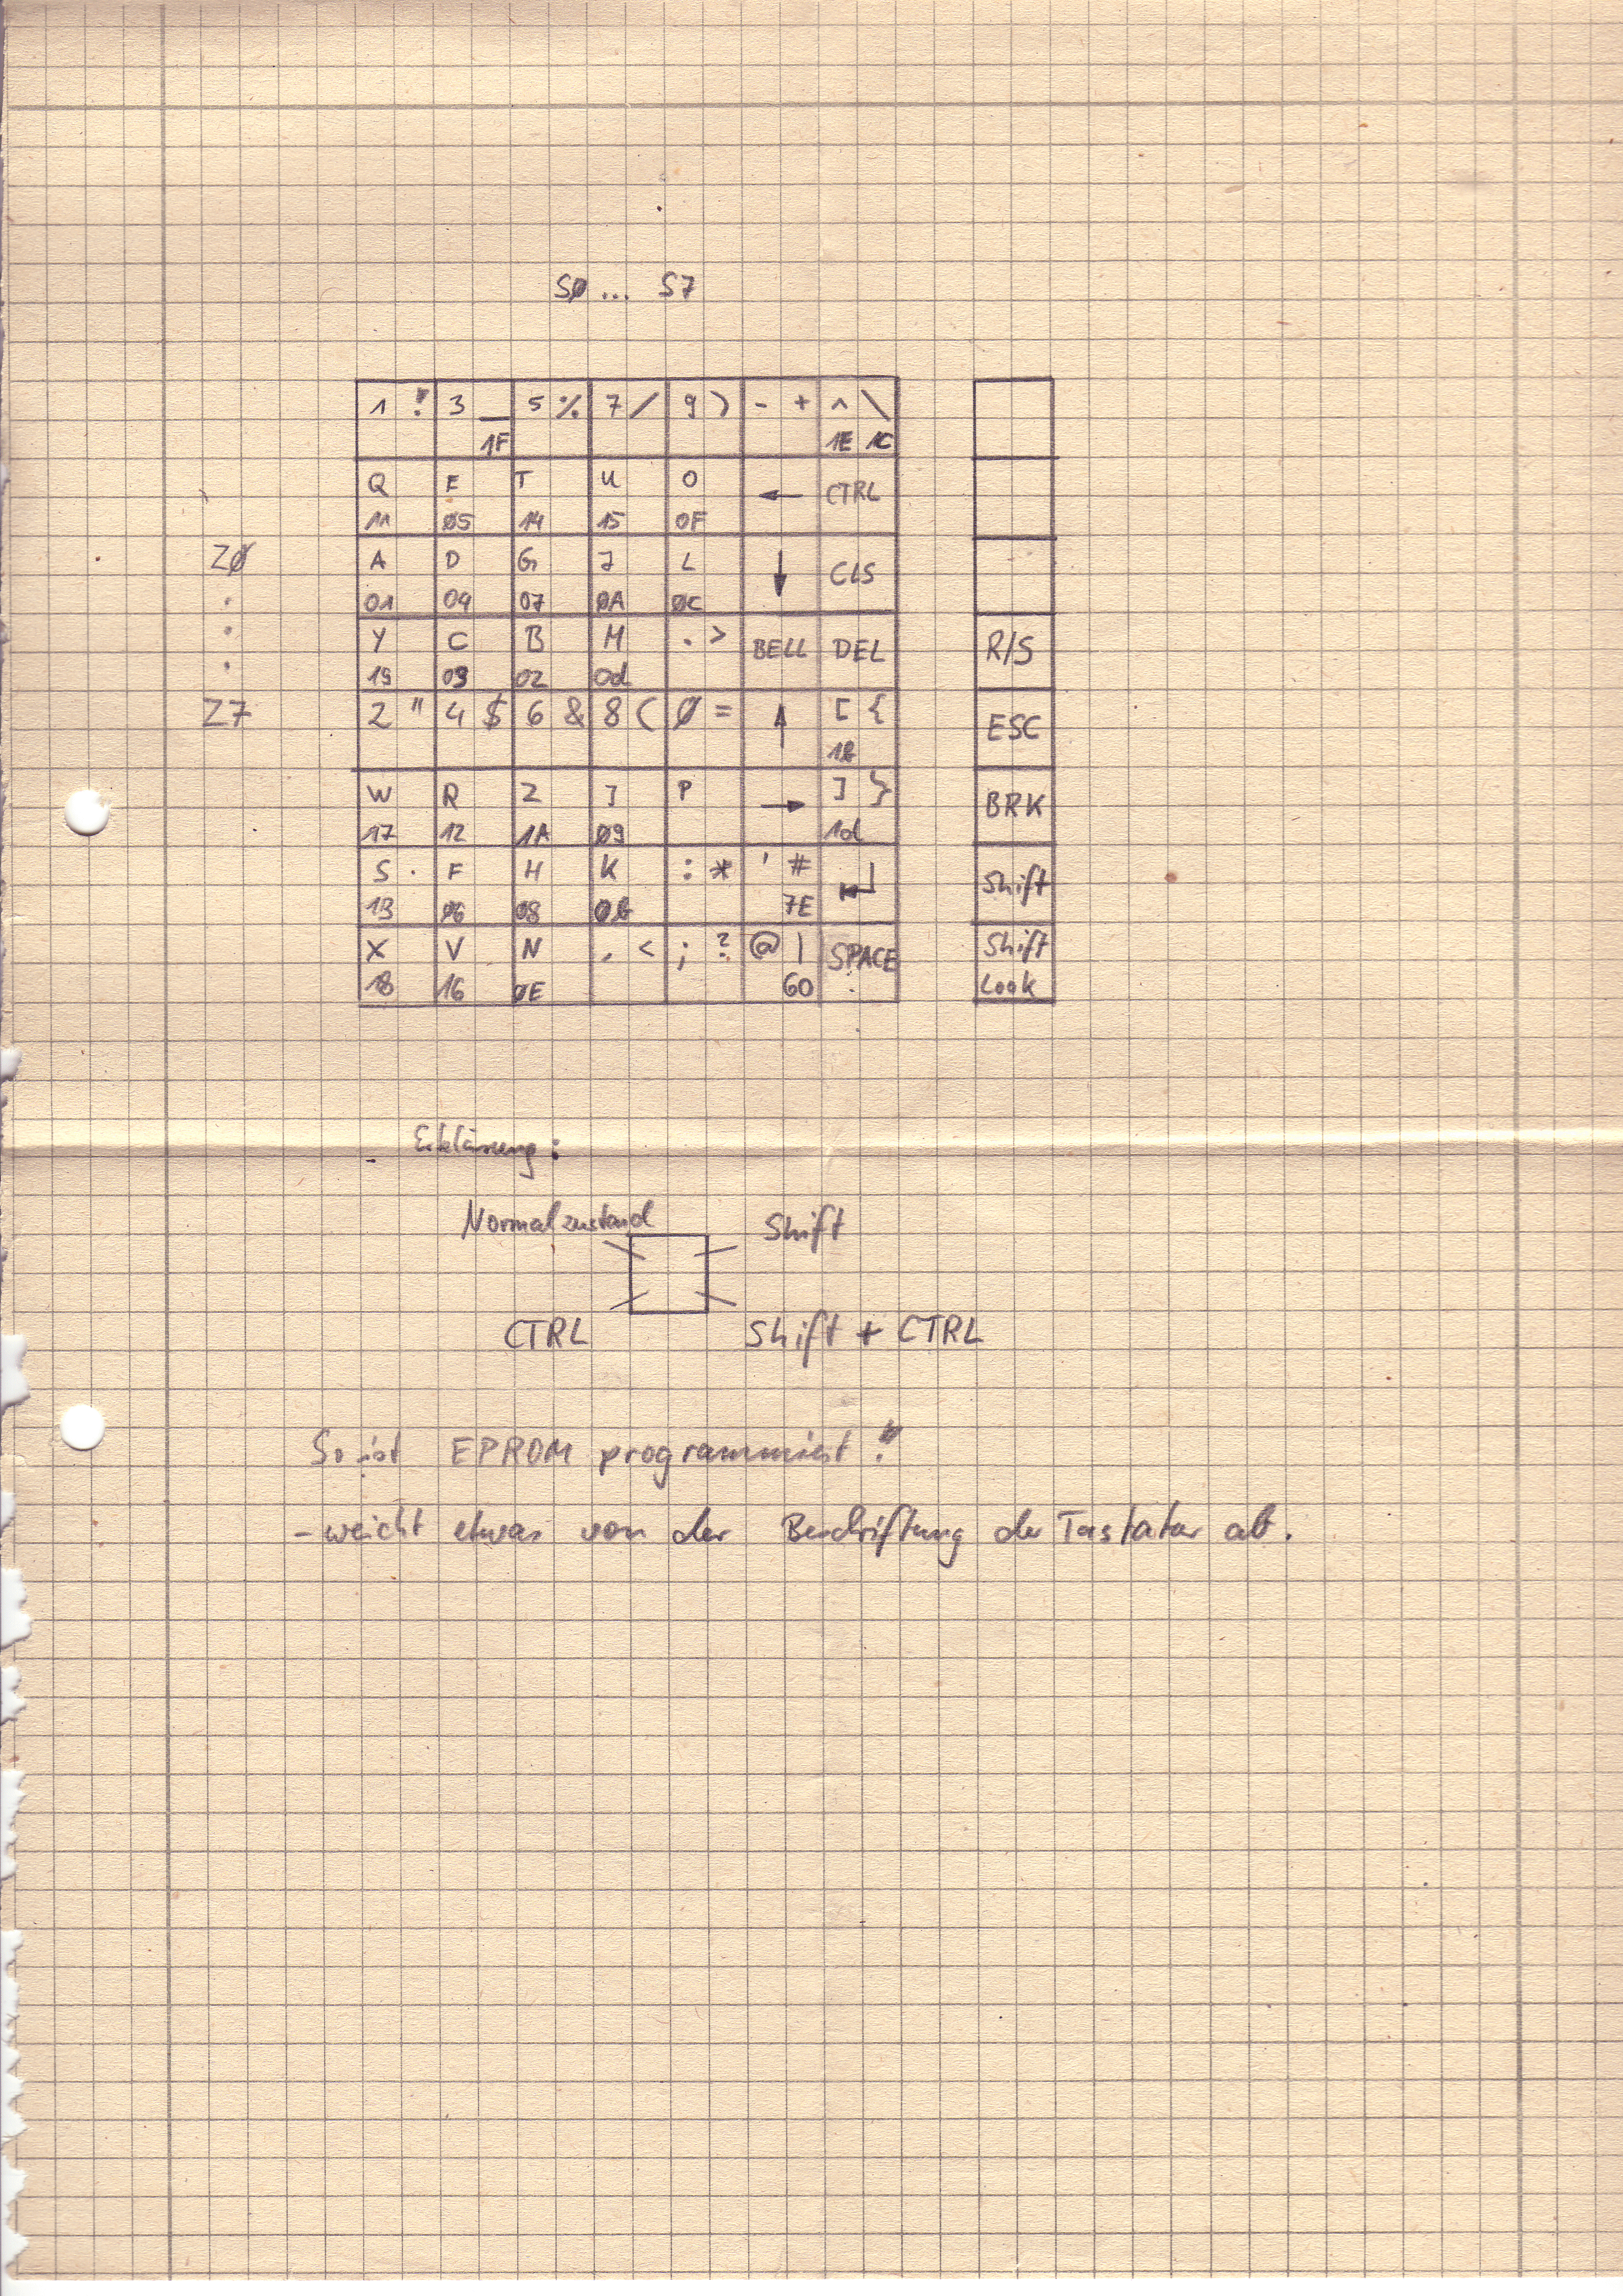 SØ ... S7
1 ! 3 _ 5 % 7 / 9 ) - + ^ \
1F 1E 1C
Q E T U O ← CTRL
11 05 14 15 0F
ZØ A D G J L ↓ CLS
01 04 07 0A 0C
Y C B M . > BELL DEL R/S
19 03 02 0d
Z7 2 " 4 $ 6 & 8 ( Ø = ↑ [ { ESC
1B
W R Z I P → ] } BRK
17 12 1A 09 1d
S F H K : * ' # ↵ Shift
13 06 08 0B 7E
X V N , < ; ? @ | SPACE Shift
18 16 0E 60 Look
Erklärung:
Normalzustand Shift
CTRL Shift + CTRL
So ist EPROM programmiert!
- weicht etwas von der Beschriftung der Tastatur ab.